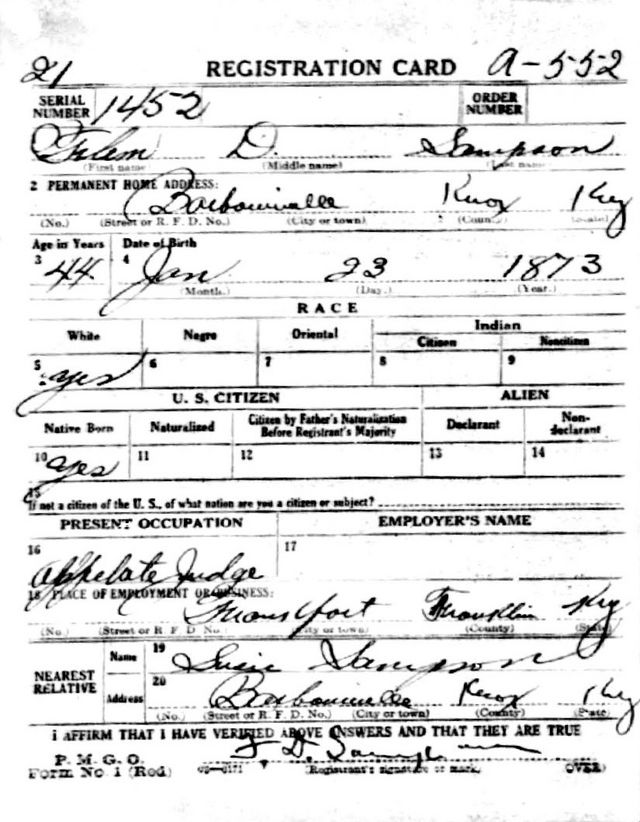 21 REGISTRATION CARD A-552
SERIAL NUMBER 1452 ORDER NUMBER
Flem D. Sampson
(First name) (Middle name) (Last name)
2 PERMANENT HOME ADDRESS:
Barbourville Knox Ky
(No.) (Street or R. F. D. No.) (City or town) (County) (State)
Age in Years Date of Birth
3 44 4 Jan 23 1873
(Month.) (Day.) (Year.)
RACE
White Negro Oriental Indian
Citizen Noncitizen
5 yes 6 7 8 9
U. S. CITIZEN ALIEN
Native Born Naturalized Citizen by Father's Naturalization Before Registrant's Majority Declarant Non-declarant
10 yes 11 12 13 14
15
If not a citizen of the U. S., of what nation are you a citizen or subject?
PRESENT OCCUPATION EMPLOYER'S NAME
16 17
Appelate Judge
18 PLACE OF EMPLOYMENT OR BUSINESS:
Frankfort Franklin Ky
(No.) (Street or R. F. D. No.) (City or town) (County) (State)
NEAREST RELATIVE Name 19 Susie Sampson
Address 20 Barbourville Knox Ky
(No.) (Street or R. F. D. No.) (City or town) (County) (State)
I AFFIRM THAT I HAVE VERIFIED ABOVE ANSWERS AND THAT THEY ARE TRUE
P. M. G. O. F. D. Sampson
Form No. 1 (Red) (Registrant's signature or mark) (OVER)